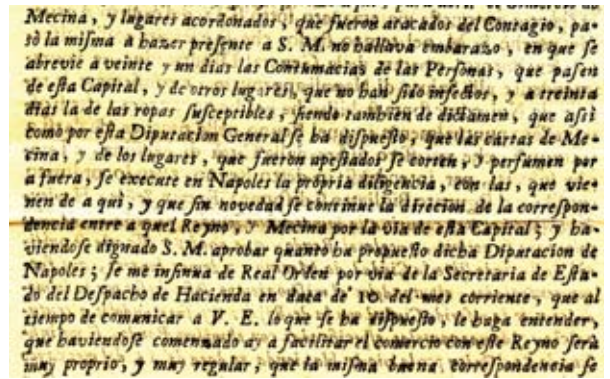 Mecina, y lugares acordonados, que fueron atacados del Contagio, pa-
sò la misma à hazer presente a S. M. no hallava embarazo, en que se
abrevie à veinte y un dias las Contumacias de las Personas, que pasen
de esta Capital, y de otros lugares, que no han sido infectos, y a treinta
dias la de las ropas susceptibles, siendo tambien de dictamen, que assi
como por esta Diputacion General se ha dispuesto, que las cartas de Me-
cina, y de los lugares, que fueron apestados se corten, y perfumen por
a fuera, se execute en Napoles la propria diligencia, con las, que vie-
nen de a qui, y que sin novedad se continue la direcion de la correspon-
dencia entre a quel Reyno, y Mecina por la via de esta Capital; y ha-
viendose dignado S. M. aprobar quanto ha propuesto dicha Diputacion de
Napoles; se me insinua de Real Orden por via de la Secretaria de Esta-
do del Despacho de Hacienda en data de 10. del mes corriente, que al
tiempo de comunicar a V. E. lo que se ha dispuesto, le haga entender,
que haviendose comenzado ay a facilitar el comercio con este Reyno serà
muy proprio, y muy regular, que la misma buena correspondencia se